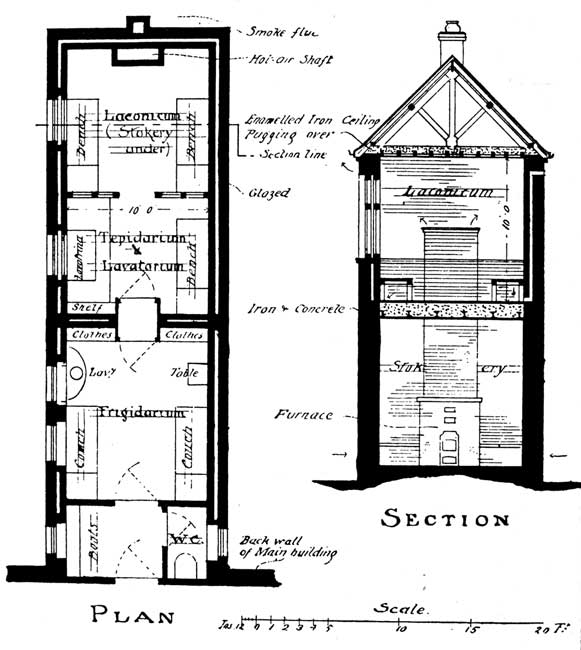 Smoke flue
Hot-air Shaft
Laconicum
(Stokery
under)
Bench
Bench
Enamelled Iron Ceiling
Pugging over
Section line
Glazed
10' 0
Tepidarium
Lavatorium
Bench
Shelf
Iron & Concrete
Clothes
Clothes
Lavy
Table
Frigidarium
Couch
Couch
Boots
W.C.
Back wall
of Main building
PLAN
Laconicum
10' 0
Stokery
Furnace
SECTION
Scale.
Ins. 12 0 1 2 3 4 5 10 15 20 Ft